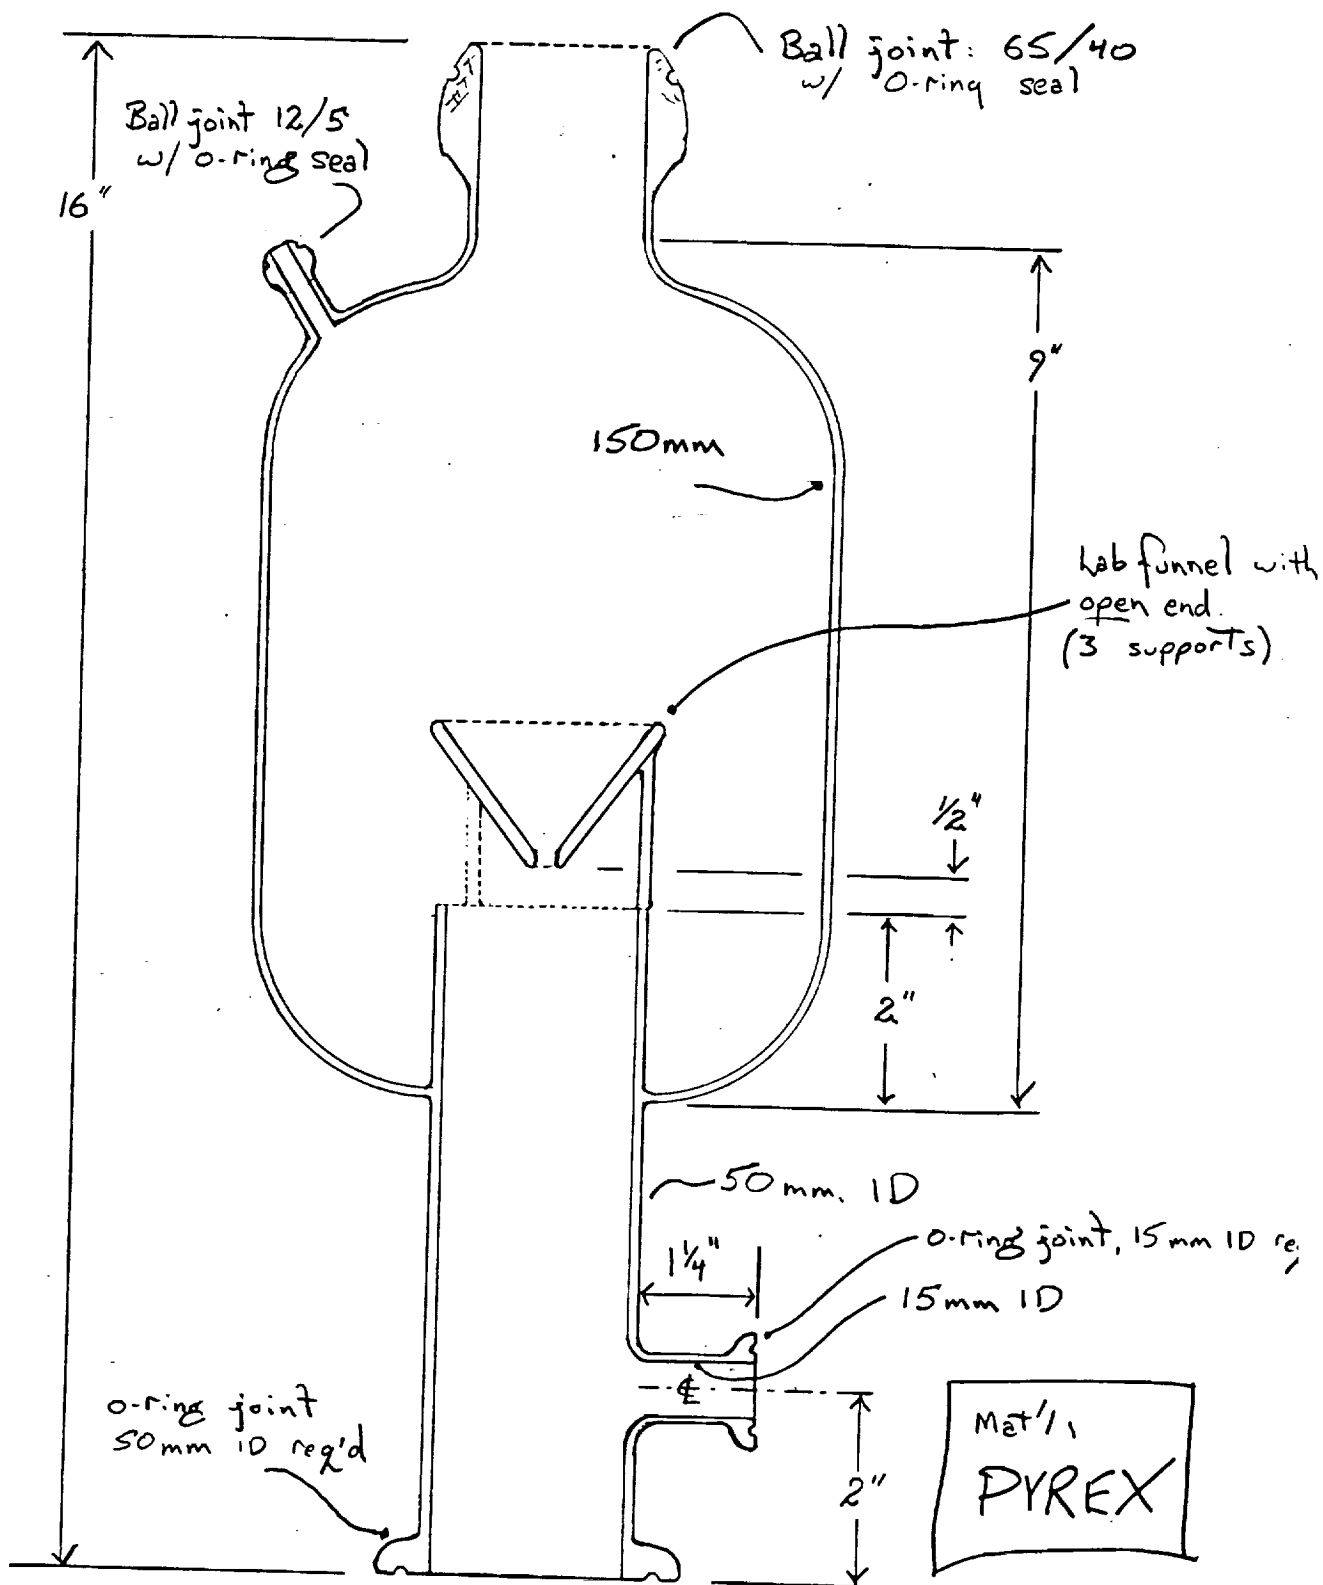 Ball joint: 65/40
w/ O-ring seal
Ball joint 12/5
w/ O-ring seal
16"
9"
150mm
Lab funnel with
open end.
(3 supports)
1/2"
2"
50mm. ID
O-ring joint, 15mm ID
1 1/4"
15mm ID
℄
O-ring joint
50mm ID req'd
2"
Mat'l,
PYREX